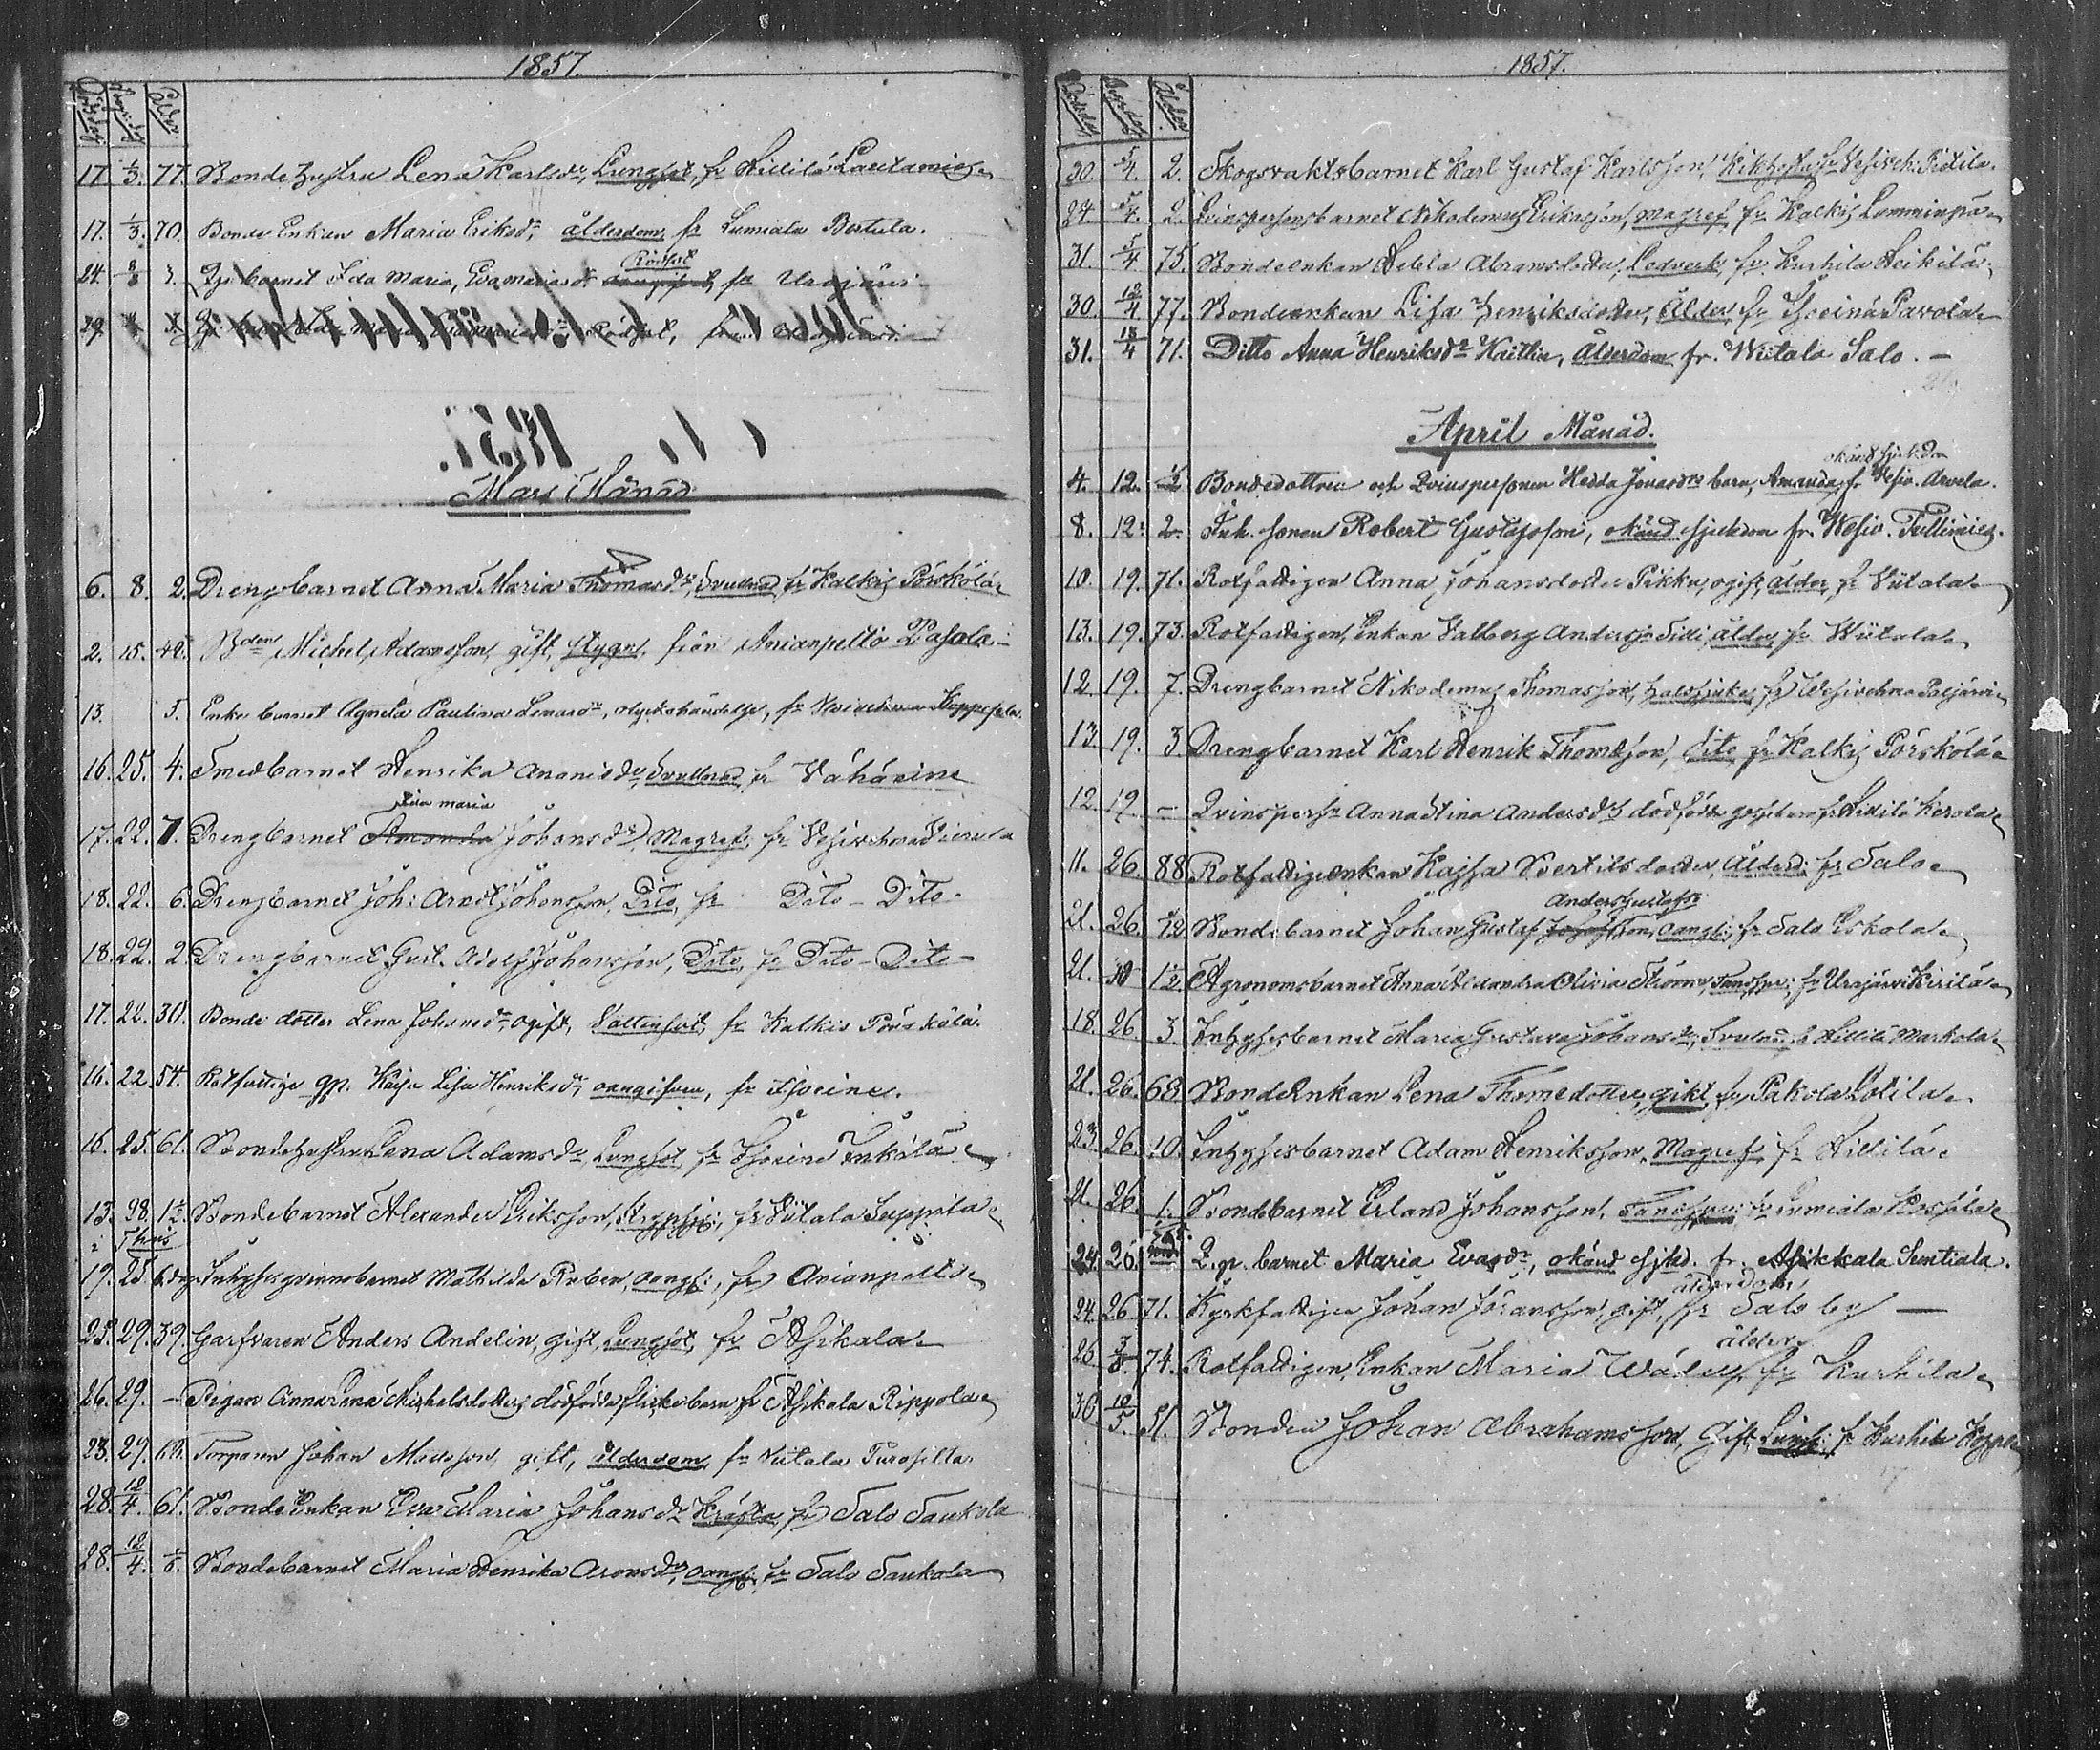 1857.
Dödsdag Begr. dag Ålder
17. 1/3. 77. Bondehustru Lena Karlsdr, Lungsot, fr Hillilä
17. 1/3. 70. Bonde Enkan Maria Eriksdr, ålderdom, fr Lumiala Bertula.
Rödsot
24. 8/3 3. Qp. barnet Ida Maria, Evamariasdr oangifvet, fr Urajärvi
29.
Mars Månad
6. 8. 2. Drengbarnet Anna Maria Thomasdr, Svullnad, fr Kalkis Pörskölä
2. 15. 42. Bonden Michel Adamsson, gift, stygn, från Anianpelto Pasola
13. 5. Enke barnet Agneta Paulina Lenardr, olyckshändelse, fr
16. 25. 4. Smedbarnet Henrika Ananiedr, Svullnad, fr Vähäeine
Lisa Maria
17. 22. 7. Drengbarnet Amanda Johansdr, Magref, fr Vesivehmaa Vierula
18. 22. 6. Drengbarnet Joh: Arnst Johansson, Dito, fr Dito - Dito -
18. 22. 2. Drengbarnet Gust. Adolf Johansson, Dito, fr Dito - Dito -
17. 22. 30. Bonde dotter Lena Johansdr, ogift, Vattensot, fr Kalkis Pörskölä.
16. 22. 54. Rotfattiga qp. Kajsa Lisa Henriksdr, oangifven, fr Isoeine.
16. 25. 61. Bondehustru Lena Adamsdr, Lungsot, fr Isoeine Inkilä
15. 28. 1 1/2. Bondebarnet Alexander Eriksson, fr Viitala Seppälä
19. 25. 6 dag. Inhyses qvinnobarnet Mathilda Ruben, oangif:, fr Anianpelto
25. 29. 39. Garfvaren Anders Andelin, gift, Lungsot, fr Asikala
26. 29. — Pigan Anna Lena Michelsdotters dödfödda flickebarn fr Asikala Rippola
28. 29. 68. Torparen Johan Madsson, gift, ålderdom, fr Viitala
28. 12/4. 61. Bonde Enkan Eva Maria Johansdr Kräfta, fr Salo Saukola
28. 12/4. 1/6. Bondebarnet Maria Henrika Aronsdr, oangf, fr Salo Saukola
1857.
Dödsdag Begr. dag Ålder.
30. 5/4. 2. Skogsvaktsbarnet Karl Gustaf Karlsson, Kikhosta, fr Vesiveh. Pietilä.
24. 5/4. 2. Qvinspersonsbarnet Nikodemus Eriksson, magref, fr Kalkis Lemminpää
31. 5/4 75. Bondeenkan Hebla Abramsdotter, Ledverk, fr Kurhila Heikilä
30. 12/4 77. Bondeenkan Lisa Henriksdotter, Ålder, fr Isoeinä Pavola
31. 13/4 71. Ditto Anna Henriksdr Kaitlin, Ålderdom fr. Wiitala Salo. —
April Månad.
okänd sjukdom
4. 12. 1/2 Bondedottren och Qvinspersonen Hedda Jonasdrs barn, Amanda, fr Vesiv. Arvela.
8. 12. 2. Inh. sonen Robert Gustafsson, okänd sjukdom fr. Wesiv.
10. 19. 71. Rotfattigen Anna Johansdotter Pikku, ogift, ålder, fr Viitala
13. 19. 73. Rotfattigen, Enkan Valberg Andersdr Sidi, ålder, fr Wiitala
12. 19. 7. Drengbarnet Nikodemus Thomasson, halssjuka, fr Wesivehma Paijärvi
13. 19. 3. Drengbarnet Karl Henrik Thomasson, dito, fr Kalkis Pörskölä
12. 19. — Qvinspersn Anna Stina Andersdrs dödfödda gossebarn fr Hillilä Kerola
11. 26. 88. Rotfattigenkan Kajsa Bertilsdotter, Ålderd. fr Salo
Anders Gustafss
21. 26. 1/12 Bondebarnet Johan Gustaf oangif: fr Salo Eskola
21. 30 1 1/2. Agronomsbarnet Anna Alexandra Olivia fr Urajärvi Kirilä
18. 26 3 Inhysesbarnet Maria Gustava Johansdr, Svulnad, fr Hillilä Markola
21. 26. 68 BondeEnkan Lena Thomedotter, gikt, fr Pakola Lotila
23. 26. 10. Inhysesbarnet Adam Henriksson, Magref, fr Hillilä.
21. 26. 1. Bondebarnet Erland Johansson, fr Lumiala
24. 26. Q.p. barnet Maria Evasdr, okänd sjukd. fr. Asikkala Sentiala.
ålderdom
24. 26 71. Kyrkfattigen Johan Jöransson, gift, fr Salo by —
ålder
26. 3/5. 74. Rotfattigen, Enkan Maria fr Kurhila
30. 10/5. 51. Bonden Johan Abrahamsson, Gift, Lungs: fr Kurhila